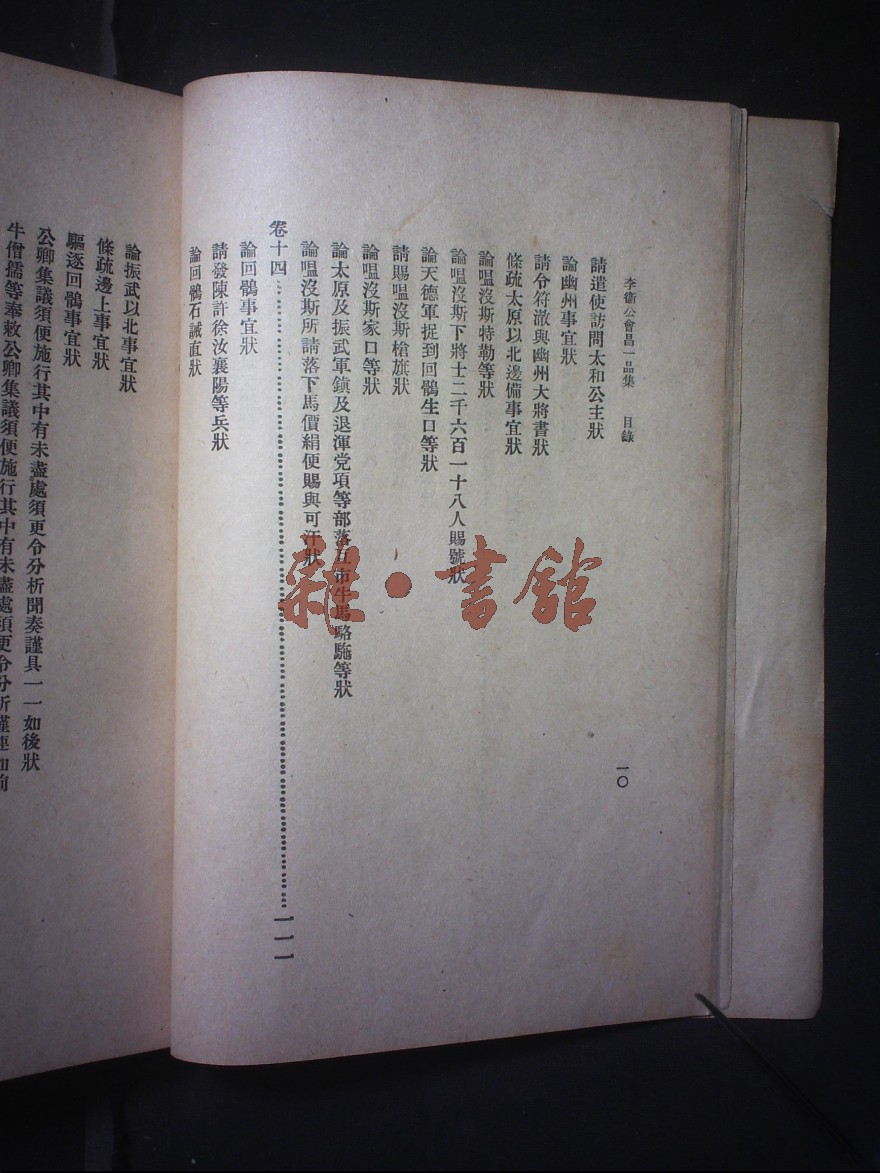 李衞公會昌一品集　目錄
一〇
請遣使訪問太和公主狀
論幽州事宜狀
請令符澈與幽州大將書狀
條疏太原以北邊備事宜狀
論嗢沒斯特勒等狀
論嗢沒斯下將士二千六百一十八人賜號狀
論天德軍捉到回鶻生口等狀
請賜嗢沒斯槍旗狀
論嗢沒斯家口等狀
論太原及振武軍鎮及退渾党項等部落互市牛馬駱駞等狀
論嗢沒斯所請落下馬價絹便賜與可汗狀
卷十四……一一一
論回鶻事宜狀
請發陳許徐汝襄陽等兵狀
論回鶻石誡直狀
論振武以北事宜狀
條疏邊上事宜狀
驅逐回鶻事宜狀
公卿集議須便施行其中有未盡處須更令分析聞奏謹具一一如後狀
牛僧孺等奉敕公卿集議須便施行其中有未盡處須更令分析謹連如前
雜·書館